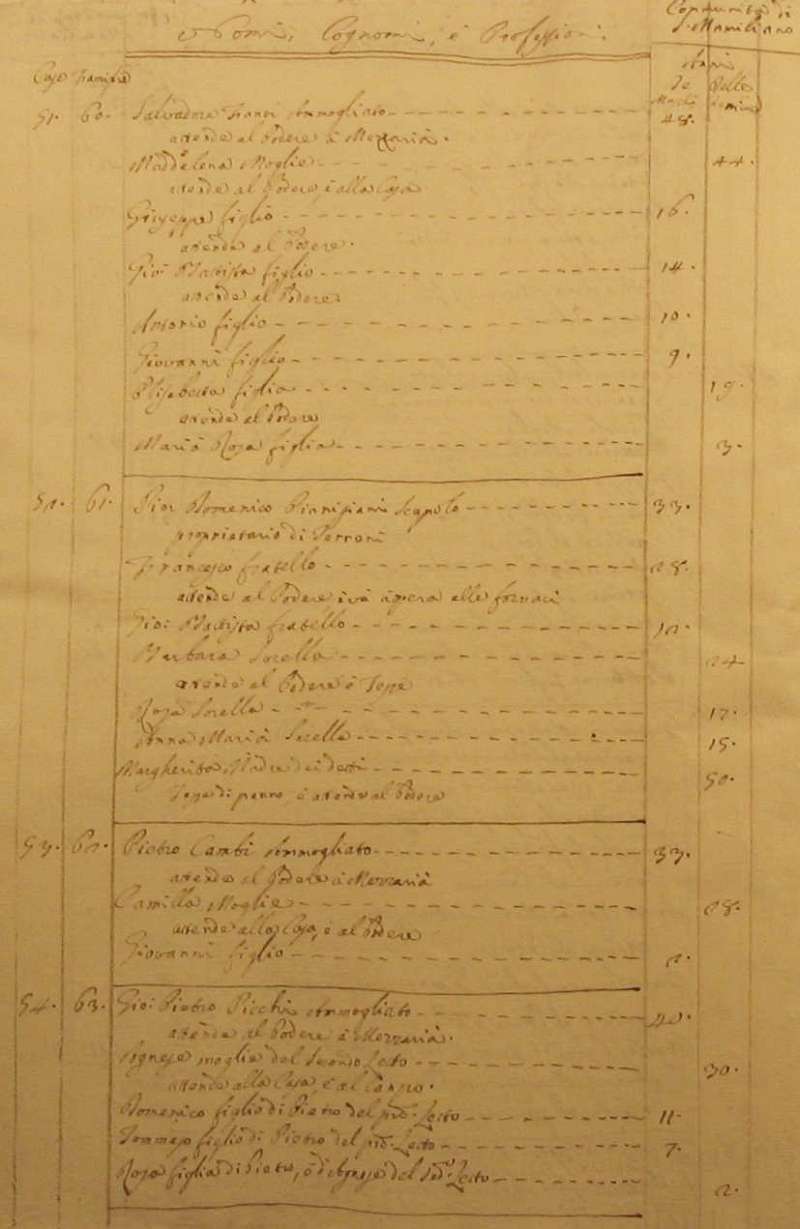 Nomi, Cognomi, e Professioni.
Comunità di
S. Mamiliano
Case Famiglie
Maschi
51. 60. Salvadore ammogliato 48.
attende al Podere a Mezzaria.
Maddalena Moglie 44.
attende al Podere e alla Casa
Giuseppe figlio 16.
attende al Podere.
Gio: Batista figlio 14.
attende al Podere
Antonio figlio 10.
Giovanni figlio 9.
Elisabetta figlia 19.
attende al Podere
Maria Rosa figlia 3.
52. 61. Pier Domenico Pianigiani Scapolo 33.
proprietario di Terreni
Francesco fratello 28.
attende al Podere alle fornaci
Gio: Batista fratello 12.
Barbara Sorella 24
attende al Podere e Tesse
Rosa Sorella 17.
Anna Maria Sorella 15.
Margherita Madre dei detti 50.
attende al Podere
53. 62. Pietro Cambi Ammogliato 33.
attende al Podere a Mezzaria
Camilla Moglie 28.
attende alla Casa, e al Podere
Giovanni figlio 2.
54. 63. Gio: Pietro Picchi Ammogliato 42.
attende al Podere a Mezzaria.
Agnesa moglie del 30.
attende alla Casa, e al
Domenico figlio di Pietro del 11.
Tommaso figlio di Pietro del 7.
Rosa figlia di Pietro, del 2.